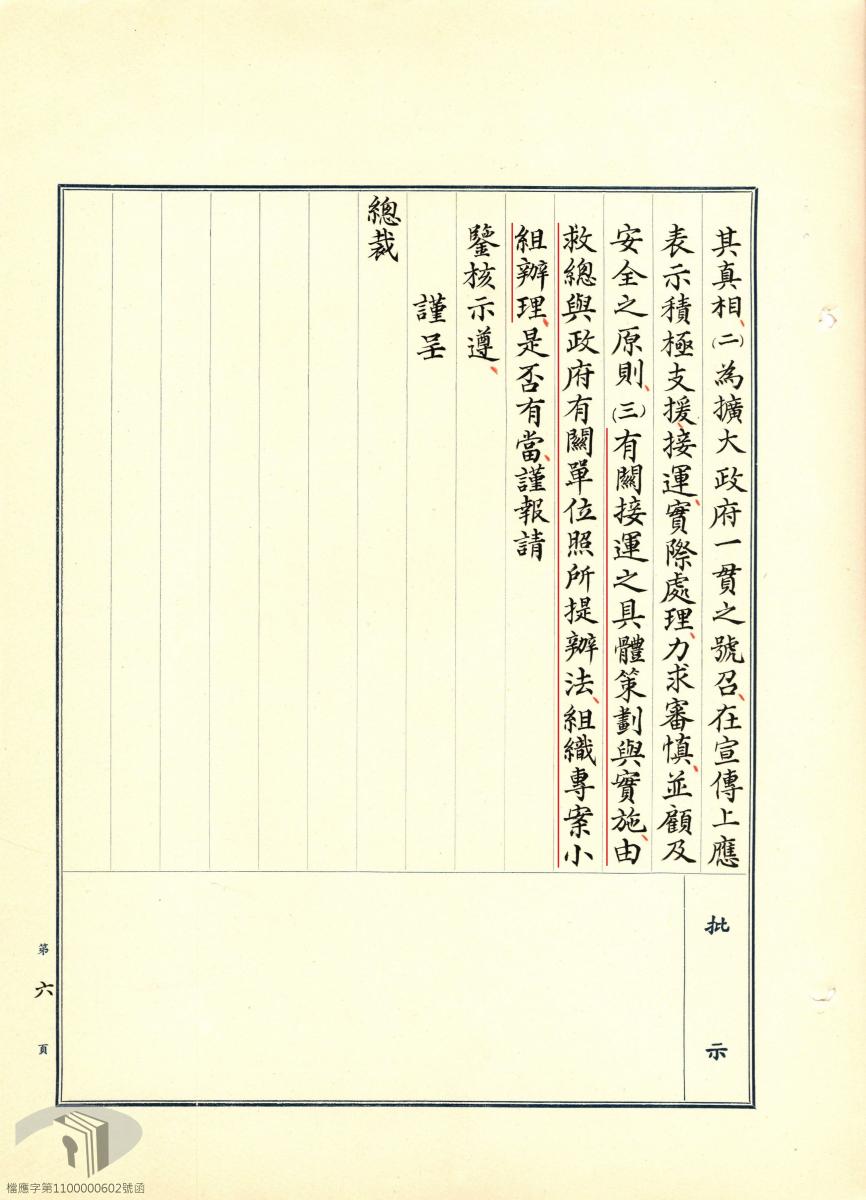 其真相、(二)為擴大政府一貫之號召、在宣傳上應
表示積極支援、接運、實際處理、力求審慎、並顧及
安全之原則、(三)有關接運之具體策劃與實施、由
救總與政府有關單位照所提辦法、組織專案小
組辦理、是否有當、謹報請
鑒核示遵、
謹呈
總裁
批示
第六頁
檔應字第1100000602號函